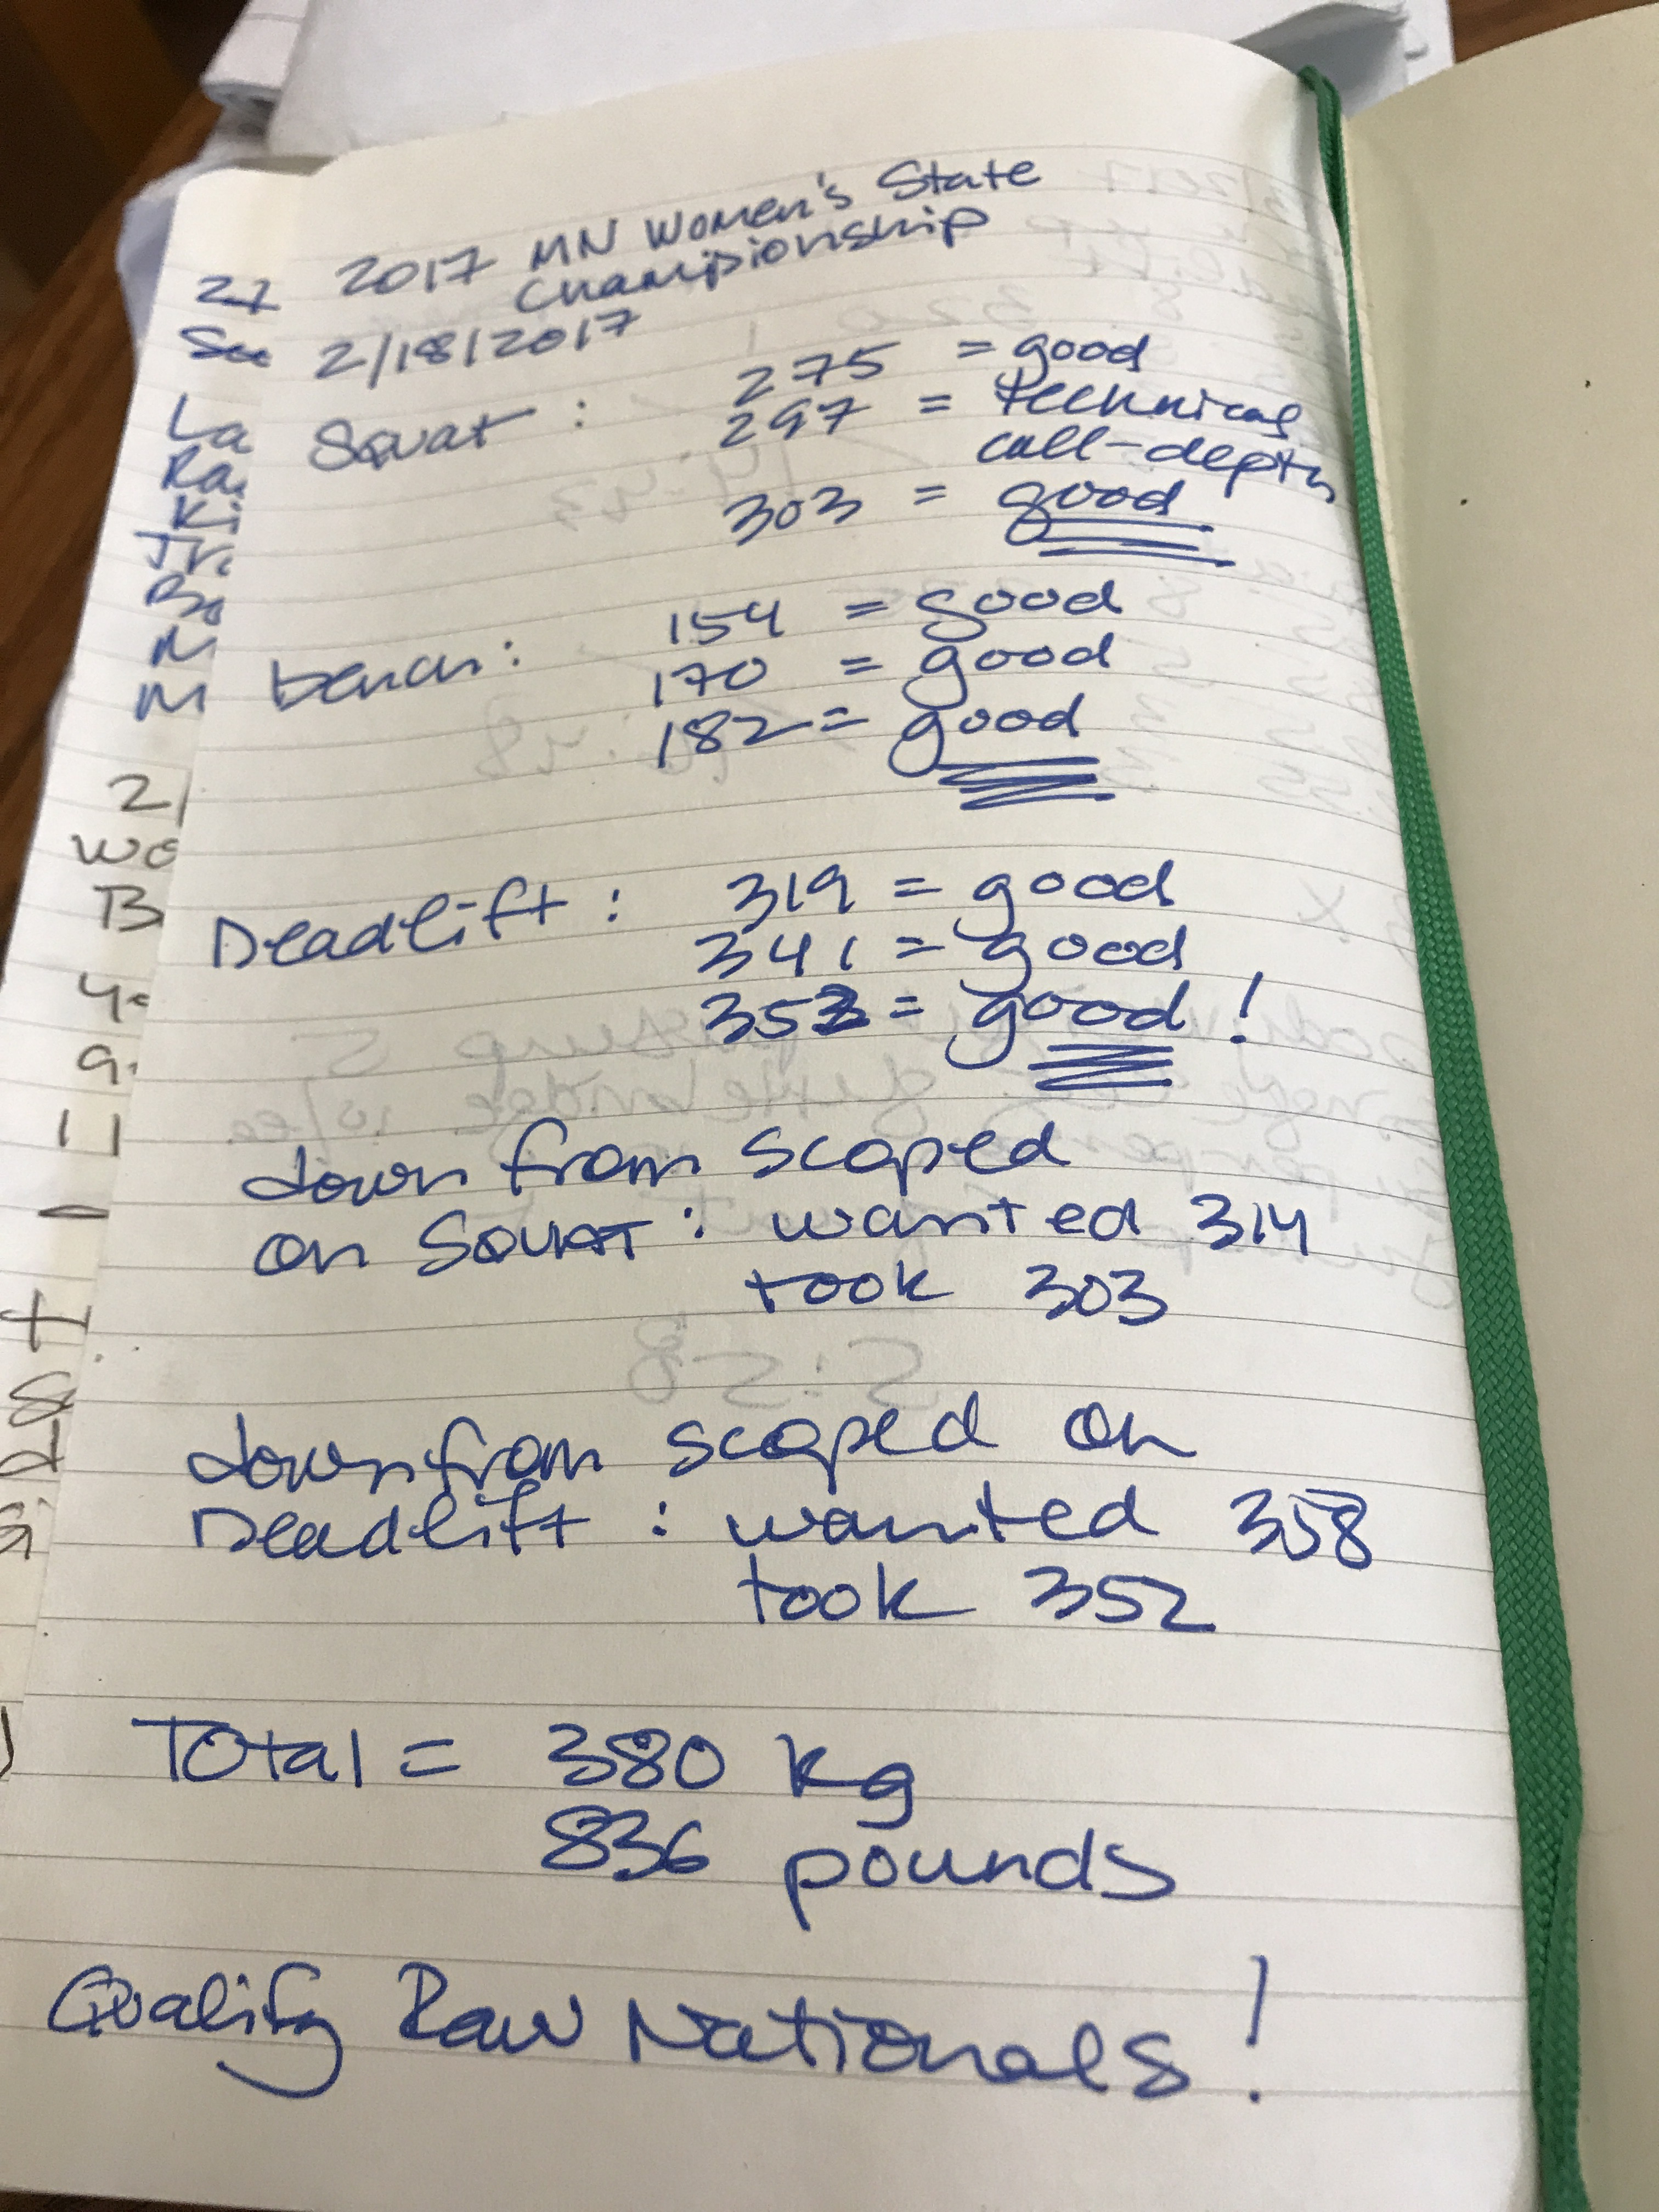 2017 MN Women's State
Championship
2/18/2017
Squat : 275 = good
297 = technical
call-depth
303 = good
bench: 154 = good
170 = good
182 = good
Deadlift : 319 = good
341 = good
352 = good!
down from scoped
on SQUAT : wanted 314
took 303
down from scoped on
Deadlift : wanted 358
took 352
Total = 380 kg
836 pounds
Qualify Raw Nationals!
La
Ra
Ki
Jr.
Bo
M
M
2/
wo
B